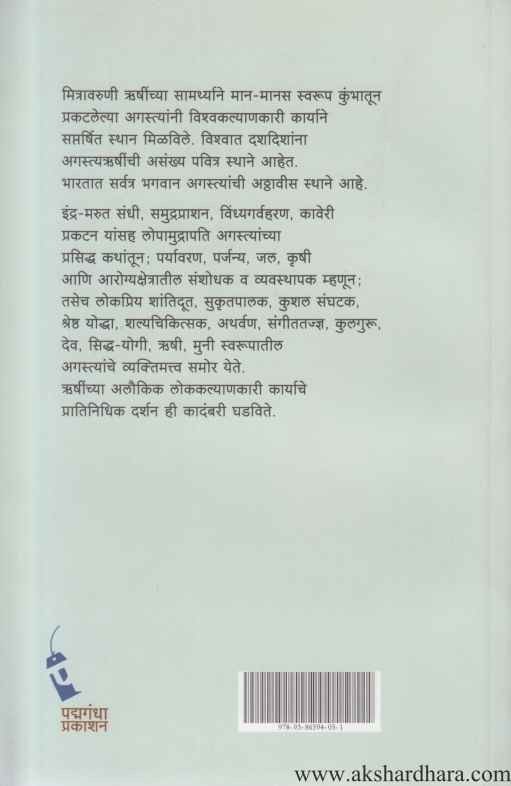 मित्रावरुणी ऋषींच्या सामर्थ्याने मान-मानस स्वरूप कुंभातून
प्रकटलेल्या अगस्त्यांनी विश्वकल्याणकारी कार्याने
सप्तर्षित स्थान मिळविले. विश्वात दशदिशांना
अगस्त्यऋषींची असंख्य पवित्र स्थाने आहेत.
भारतात सर्वत्र भगवान अगस्त्यांची अठ्ठावीस स्थाने आहे.
इंद्र-मरुत संधी, समुद्रप्राशन, विंध्यगर्वहरण, कावेरी
प्रकटन यांसह लोपामुद्रापति अगस्त्यांच्या
प्रसिद्ध कथांतून; पर्यावरण, पर्जन्य, जल, कृषी
आणि आरोग्यक्षेत्रातील संशोधक व व्यवस्थापक म्हणून;
तसेच लोकप्रिय शांतिदूत, सुकृतपालक, कुशल संघटक,
श्रेष्ठ योद्धा, शल्यचिकित्सक, अथर्वण, संगीततज्ज्ञ, कुलगुरू,
देव, सिद्ध-योगी, ऋषी, मुनी स्वरूपातील
अगस्त्यांचे व्यक्तिमत्त्व समोर येते.
ऋषींच्या अलौकिक लोककल्याणकारी कार्याचे
प्रातिनिधिक दर्शन ही कादंबरी घडविते.
पद्मगंधा
प्रकाशन
978-93-86594-05-1
www.akshardhara.com